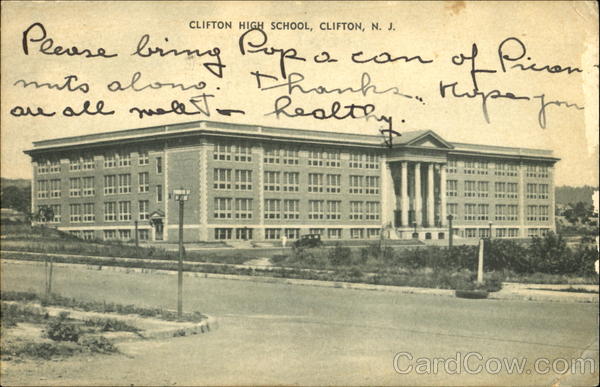 CLIFTON HIGH SCHOOL, CLIFTON, N. J.
Please bring Pop a can of
nuts along. Thanks. Hope you
are all well + healthy.
CardCow.com